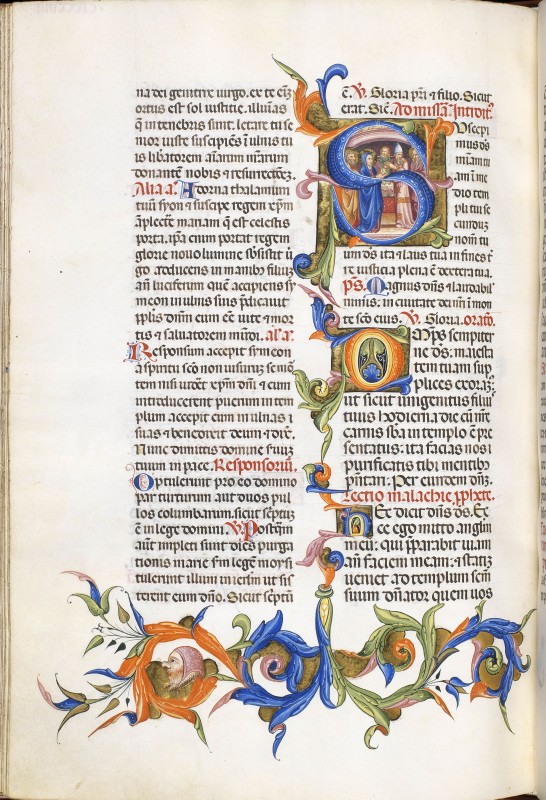 na dei genitrix virgo. ex te enĩ
ortus est sol iusticie. illuĩnas
q̃ in tenebris sunt. letare tu se
nior iuste suscipiẽs ĩ ulnis tu
is libatorem aĩarum nrãrum
donantẽ nobis ⁊ resurrectiõẽ.
Alia añ. Adorna thalamum
tuũ syon ⁊ suscipe regem xp̃m
amplectere mariam q̃ est celestis
porta. ip̃a enim portat regem
glorie nouo lumine sbsistit uĩ
go adducens in manib̾ filiuʒ
añ luciferum quẽ accipiens sy
meon in ulnas suas p̃dicauit
pp̃lis dñm eum eẽ uite ⁊ mor
tis ⁊ saluatorem mũdi. al᾿ a᾿.
Responsum accepit symeon
a spiritu sc̃o non uisurũ se mõ
tem nisi uidẽt xp̃m dñi ⁊ cum
introducerent puerum in tem
plum accepit eum in ulnas
suas ⁊ benedixit deum ⁊ dix̃.
Nunc dimittis domine seruũ
tuum in pace. Responsoriũ.
Optulerunt pro eo domino
par turturum aut duos pul
los columbarum. sicut scriptũ
ẽ in lege domini. ℣. Postq̃m
aũt impleti sunt dies purga
tionis marie sm̃ legẽ moysi
tulerunt illum in ierlm̃ ut sis
terent eum dño. Sicut scriptũ
ẽ. ℣. Gloria pr̃i ⁊ filio. Sicut
erat. Sic̃. Ad missã. Introit᾿.
Suscepi
mus ds̃
mĩam tu
am ĩ me
dio tem
pli tui se
cundũ
nom̃ tu
um ds̃ ita ⁊ laus tua in fines t̃
re iusticia plena ẽ dextera tua.
p̃s. Magnus dñs ⁊ laudabil᾿
nimis. in ciuitate dei nr̃i ĩ mon
te sc̃o eius. ℣. Gloria. orat̃o.
Omps̃ sempiter
ne ds̃: maiesta
tem tuam sup
plices exoram᾿:
ut sicut unigenitus filius
tuus hodierna die cũ nr̃e
carnis sb̃a in templo ẽ pre
sentatus: ita facias nos
purificatis tibi mentib᾿
p̃ntari. Per eundem dñʒ.
Lectio malachie pp̃hete.
Hec dicit dñs ds̃. Ec
ce ego mitto anglm̃
meũ: qui p̃parabit uiam
añ faciem meam: ⁊ statĩ
ueniet ad templum sc̃m
suum dñator quem uos